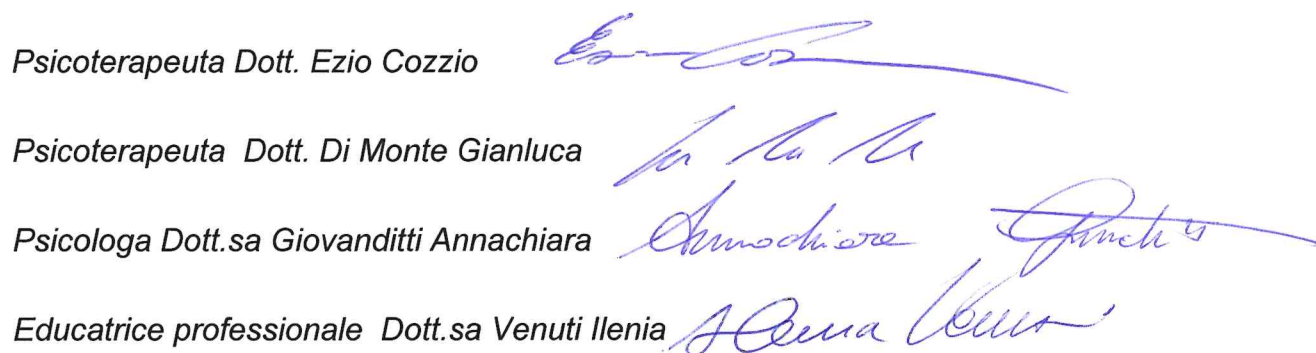 Psicoterapeuta Dott. Ezio Cozzio
Psicoterapeuta Dott. Di Monte Gianluca
Psicologa Dott.sa Giovanditti Annachiara Annachiara
Educatrice professionale Dott.sa Venuti Ilenia